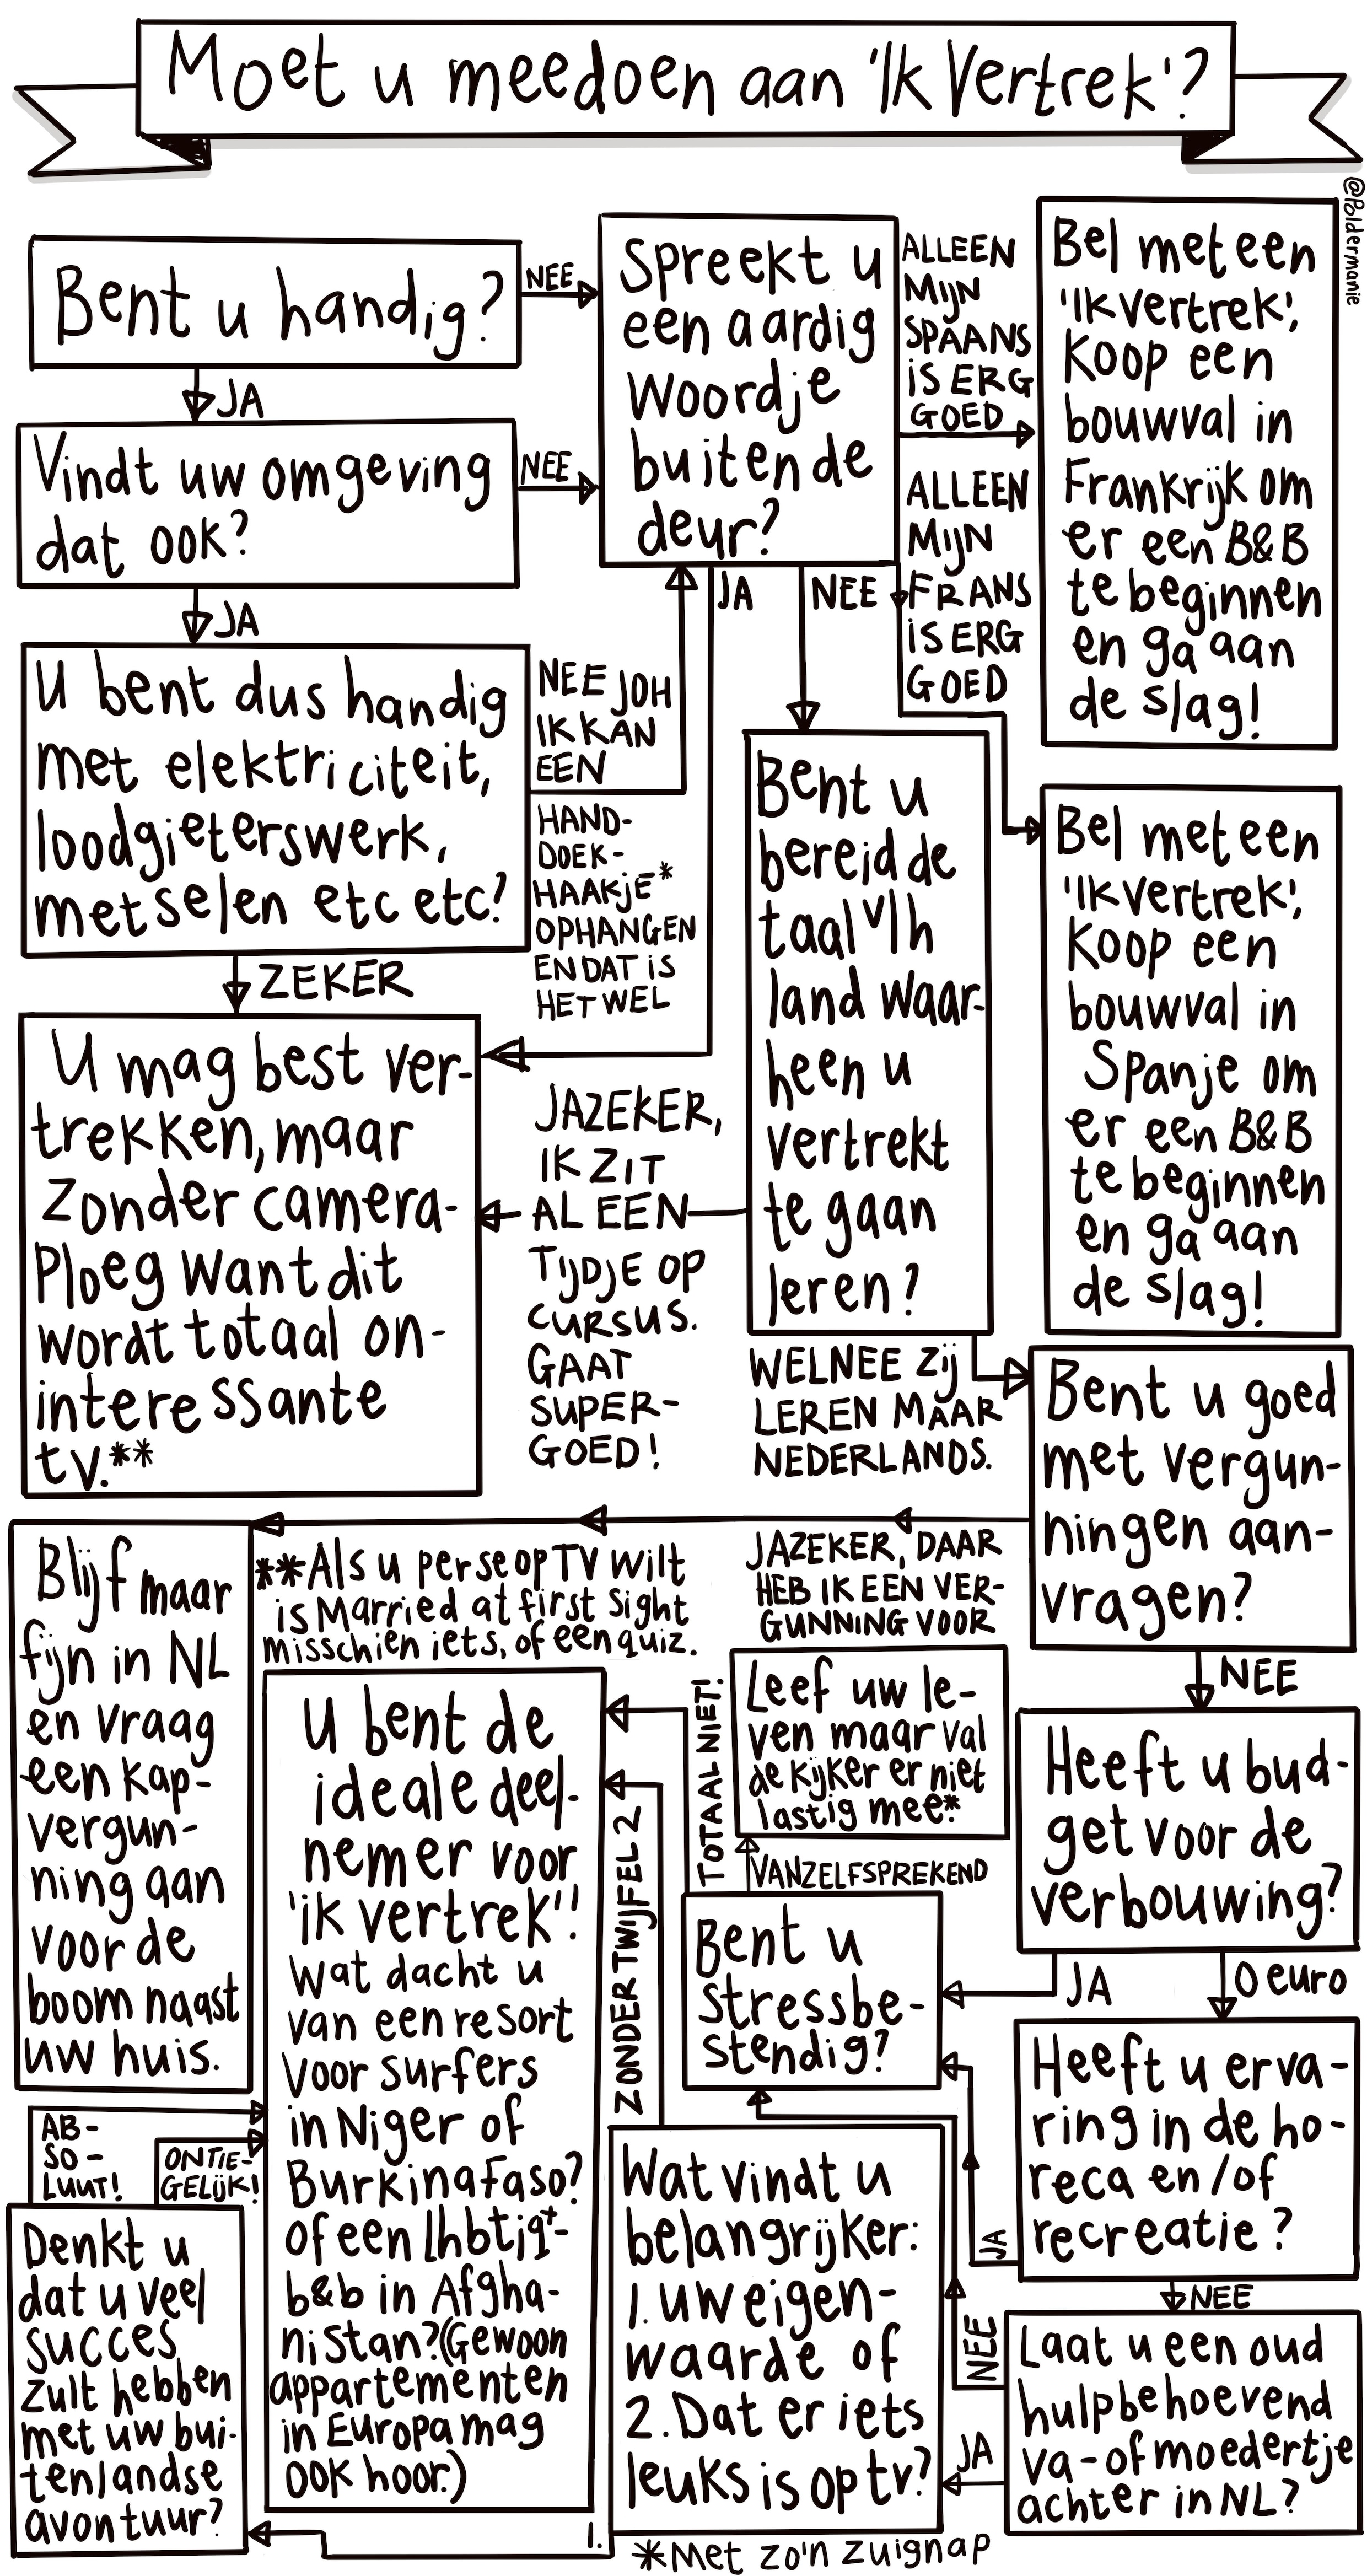 Moet u meedoen aan 'Ik Vertrek'?
@Poldermanie
Bent u handig?
NEE
JA
Spreekt u
een aardig
woordje
buiten de
deur?
ALLEEN
MIJN
SPAANS
IS ERG
GOED
Bel meteen
'Ik vertrek',
koop een
bouwval in
Frankrijk om
er een B&B
te beginnen
en ga aan
de slag!
Vindt uw omgeving
dat ook?
NEE
JA
ALLEEN
MIJN
FRANS
IS ERG
GOED
JA
NEE
U bent dus handig
met elektriciteit,
loodgieterswerk,
metselen etc etc?
NEE JOH
IK KAN
EEN
HAND-
DOEK-
HAAKJE*
OPHANGEN
EN DAT IS
HET WEL
ZEKER
Bent u
bereid de
taal v/h
land waar-
heen u
vertrekt
te gaan
leren?
Bel meteen
'Ik vertrek',
koop een
bouwval in
Spanje om
er een B&B
te beginnen
en ga aan
de slag!
U mag best ver-
trekken, maar
zonder camera-
ploeg want dit
wordt totaal on-
interessante
tv.**
JAZEKER,
IK ZIT
AL EEN
TIJDJE OP
CURSUS.
GAAT
SUPER-
GOED!
WELNEE ZIJ
LEREN MAAR
NEDERLANDS.
Bent u goed
met vergun-
ningen aan-
vragen?
JAZEKER, DAAR
HEB IK EEN VER-
GUNNING VOOR
NEE
Blijf maar
fijn in NL
en vraag
een kap-
vergun-
ning aan
voor de
boom naast
uw huis.
**Als u per se op TV wilt
is Married at first sight
misschien iets, of een quiz.
U bent de
ideale deel-
nemer voor
'ik vertrek'!
Wat dacht u
van een resort
voor surfers
in Niger of
Burkina Faso?
of een lhbtiq+-
b&b in Afgha-
nistan? (Gewoon
appartementen
in Europa mag
ook hoor.)
TOTAAL NIET!
ZONDER TWIJFEL 2
Leef uw le-
ven maar val
de kijker er niet
lastig mee.*
VANZELFSPREKEND
Bent u
stressbe-
stendig?
Heeft u bud-
get voor de
verbouwing?
JA
0 euro
Heeft u erva-
ring in de ho-
reca en/of
recreatie?
JA
NEE
Laat u een oud
hulpbehoevend
va- of moedertje
achter in NL?
NEE
JA
Wat vindt u
belangrijker:
1. uw eigen-
waarde of
2. Dat er iets
leuks is op tv?
1.
AB-
SO-
LUUT!
ONTIE-
GELIJK!
Denkt u
dat u veel
succes
zult hebben
met uw bui-
tenlandse
avontuur?
*Met zo'n zuignap